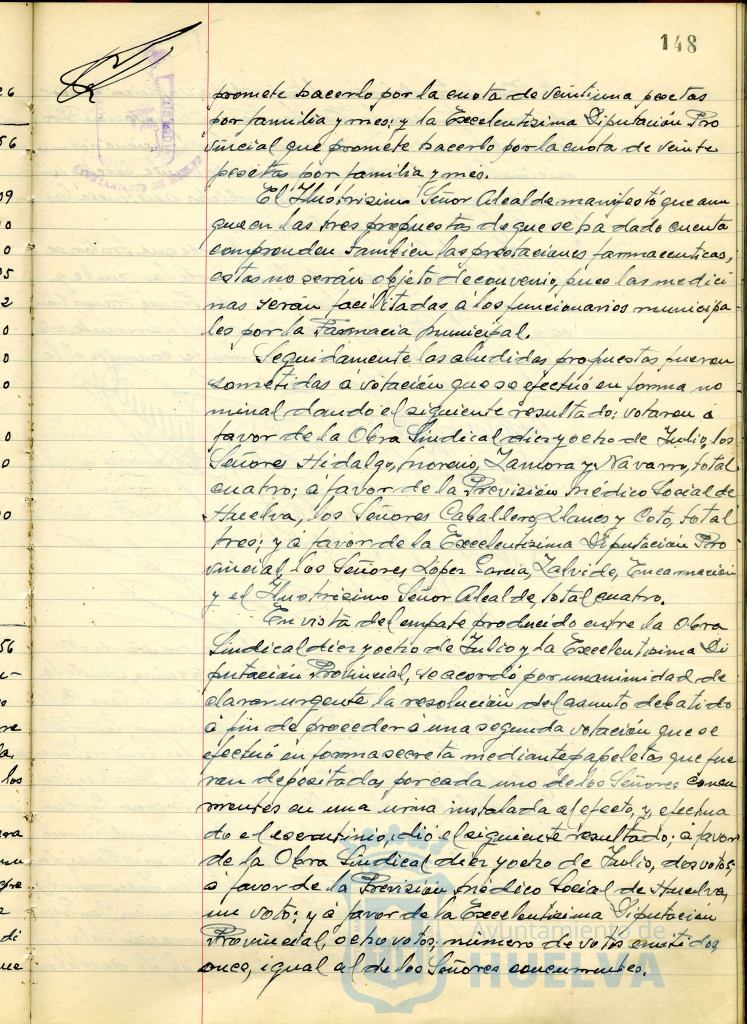 148
promete hacerlo por la cuota de veintiuna pesetas
por familia y mes; y la Excelentísima Diputación Pro
vincial que promete hacerlo por la cuota de veinte
pesetas por familia y mes.
El Ilustrísimo Señor Alcalde manifestó que aun
que en las tres propuestas de que se ha dado cuenta
comprenden tambien las prestaciones farmaceuticas,
estas no serán objeto de convenio, pues las medici
nas serán facilitadas a los funcionarios municipa
les por la Farmacia Municipal.
Seguidamente las aludidas propuestas fueron
sometidas á votación que se efectuó en forma no
minal dando el siguiente resultado: votaron á
favor de la Obra Sindical diez y ocho de Julio, los
Señores Hidalgo, Moreno, Zamora y Navarro, total
cuatro; á favor de la Previsión Médico Social de
Huelva, los Señores Caballero, Llanes y Coto, total
tres; y á favor de la Excelentísima Diputación Pro
vincial, los Señores López García, Zalvide, Encarnación
y el Ilustrísimo Señor Alcalde, total cuatro.
En vista del empate producido entre la Obra
Sindical diez y ocho de Julio y la Excelentísima Di
putación Provincial, se acordó por unanimidad de
clarar urgente la resolución del asunto debatido
á fin de proceder á una segunda votación que se
efectuó en forma secreta mediante papeletas que fue
ron depositadas por cada uno de los Señores concu
rrentes en una urna instalada al efecto, y, efectua
do el escrutinio, dió el siguiente resultado: á favor
de la Obra Sindical diez y ocho de Julio, dos votos;
á favor de la Previsión Médico Social de Huelva,
un voto; y á favor de la Excelentísima Diputación
Provincial, ocho votos; número de votos emitidos,
once, igual al de los Señores concurrentes.
Ayuntamiento de
HUELVA